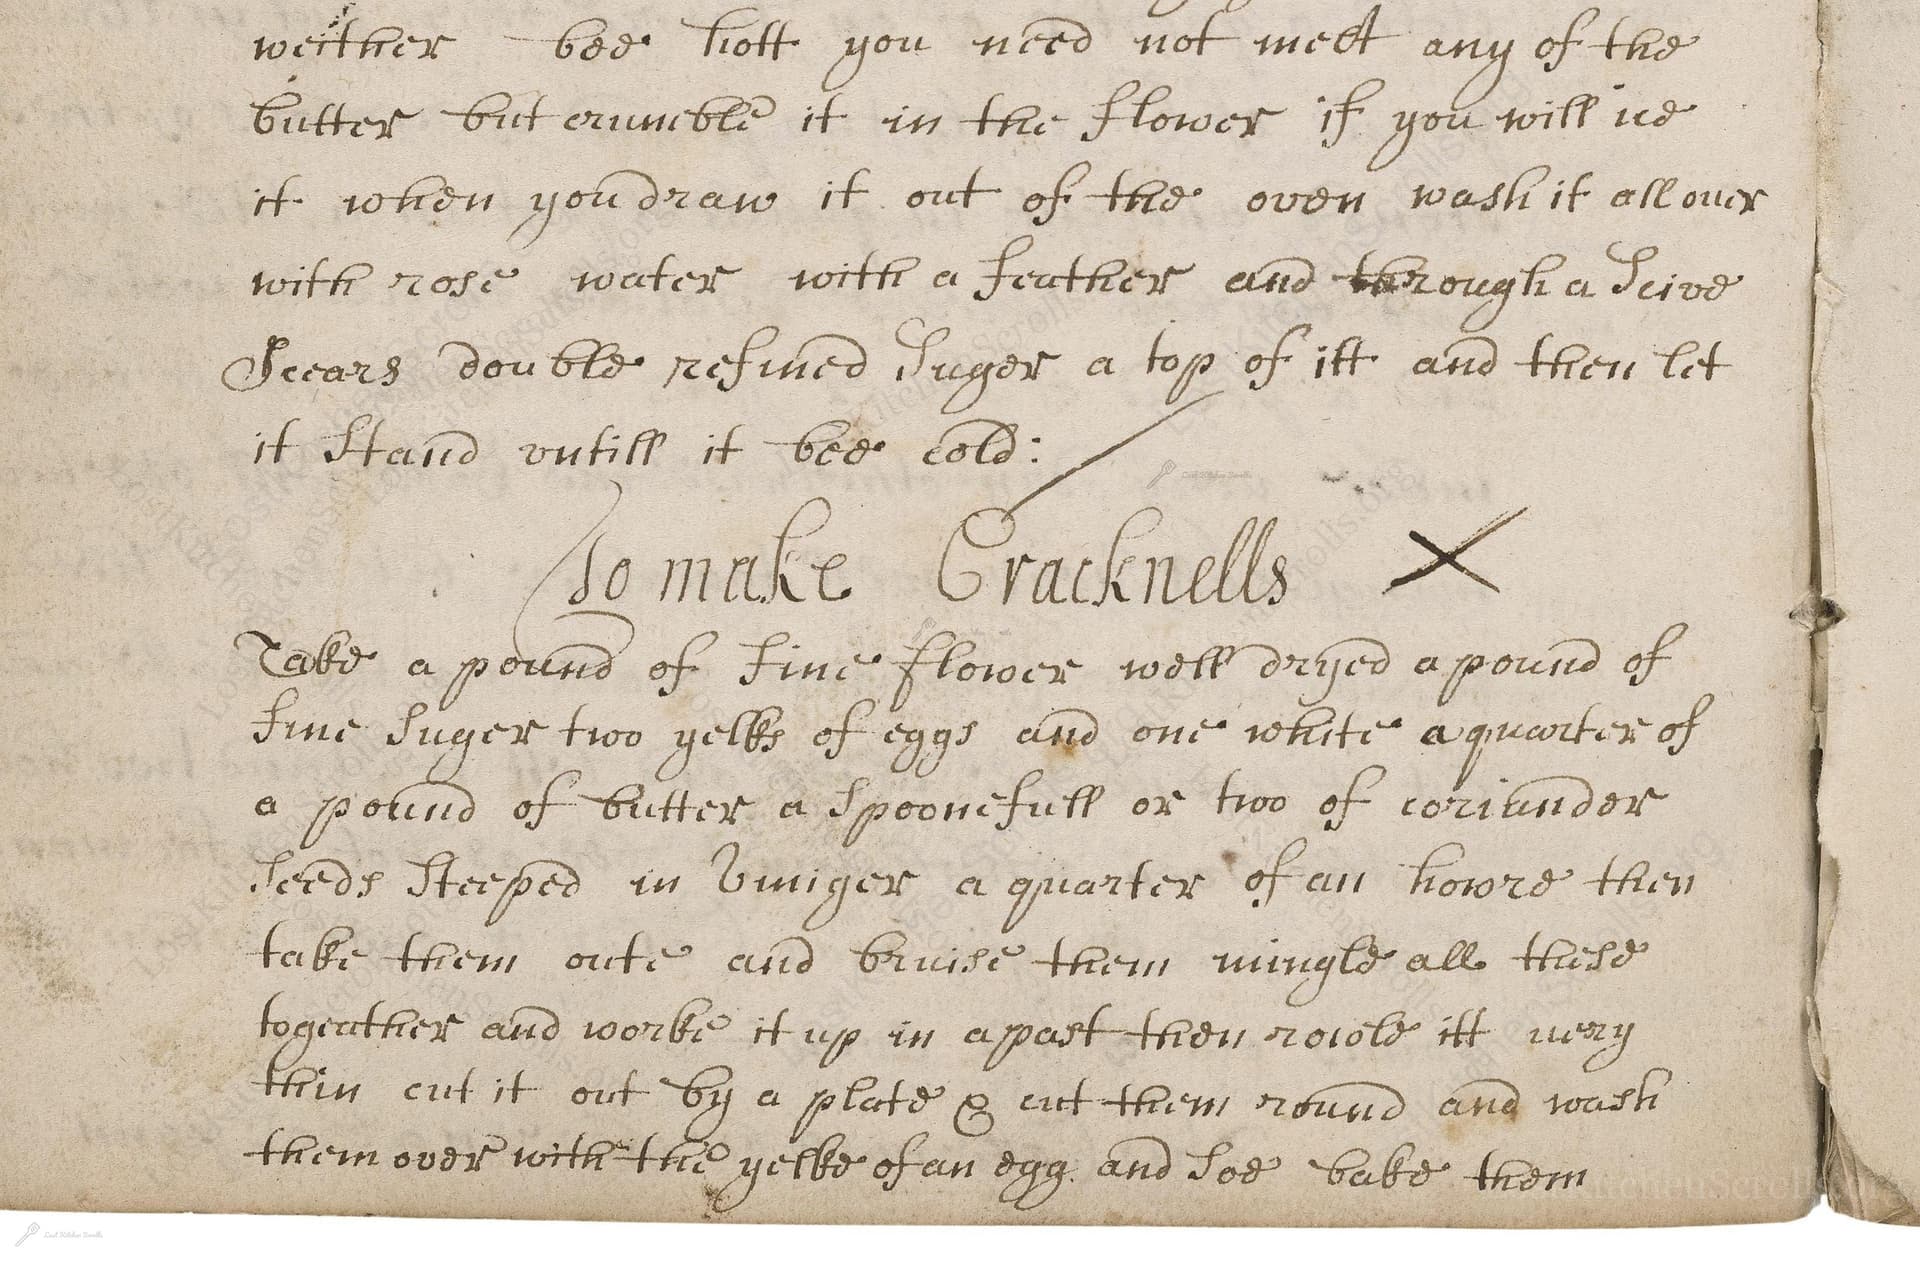 weither bee hott you need not melt any of the
butter but crumble it in the flower if you will ice
it when you draw it out of the oven wash it all over
with rose water with a feather and through a Seive
Seears double refined Suger a top of itt and then let
it Stand vntill it bee cold:
To make Cracknells
Take a pound of fine flower well dryed a pound of
fine Suger two yelks of eggs and one white a quarter of
a pound of butter a Spoonefull or two of coriander
Seeds Steeped in Viniger a quarter of an howre then
take them oute and bruise them mingle all these
togeather and worke it up in a past then rowle itt very
thin cut it out by a plate & cut them round and wash
them over with the yelke of an egg and Soe bake them